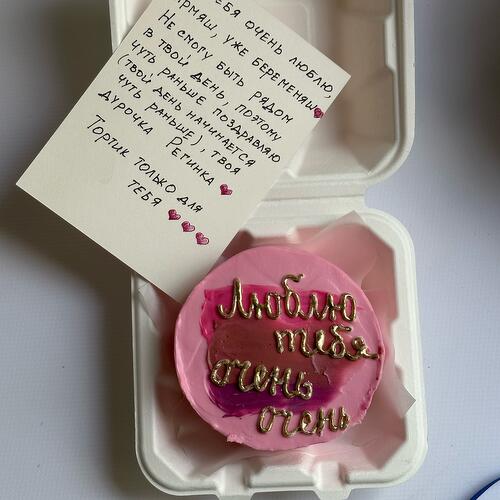 ЕБЯ ОЧЕНЬ ЛЮБЛЮ,
РМЯШ, УЖЕ БЕРЕМЕНЯШ
НЕ СМОГУ БЫТЬ РЯДОМ
В ТВОЙ ДЕНЬ, ПОЭТОМУ
ЧУТЬ РАНЬШЕ ПОЗДРАВЛЯЮ
(ТВОЙ ДЕНЬ НАЧИНАЕТСЯ
ЧУТЬ РАНЬШЕ), ТВОЯ
ДУРОЧКА РЕГИНКА
ТОРТИК ТОЛЬКО ДЛЯ
ТЕБЯ
Люблю
тебя
очень
очень